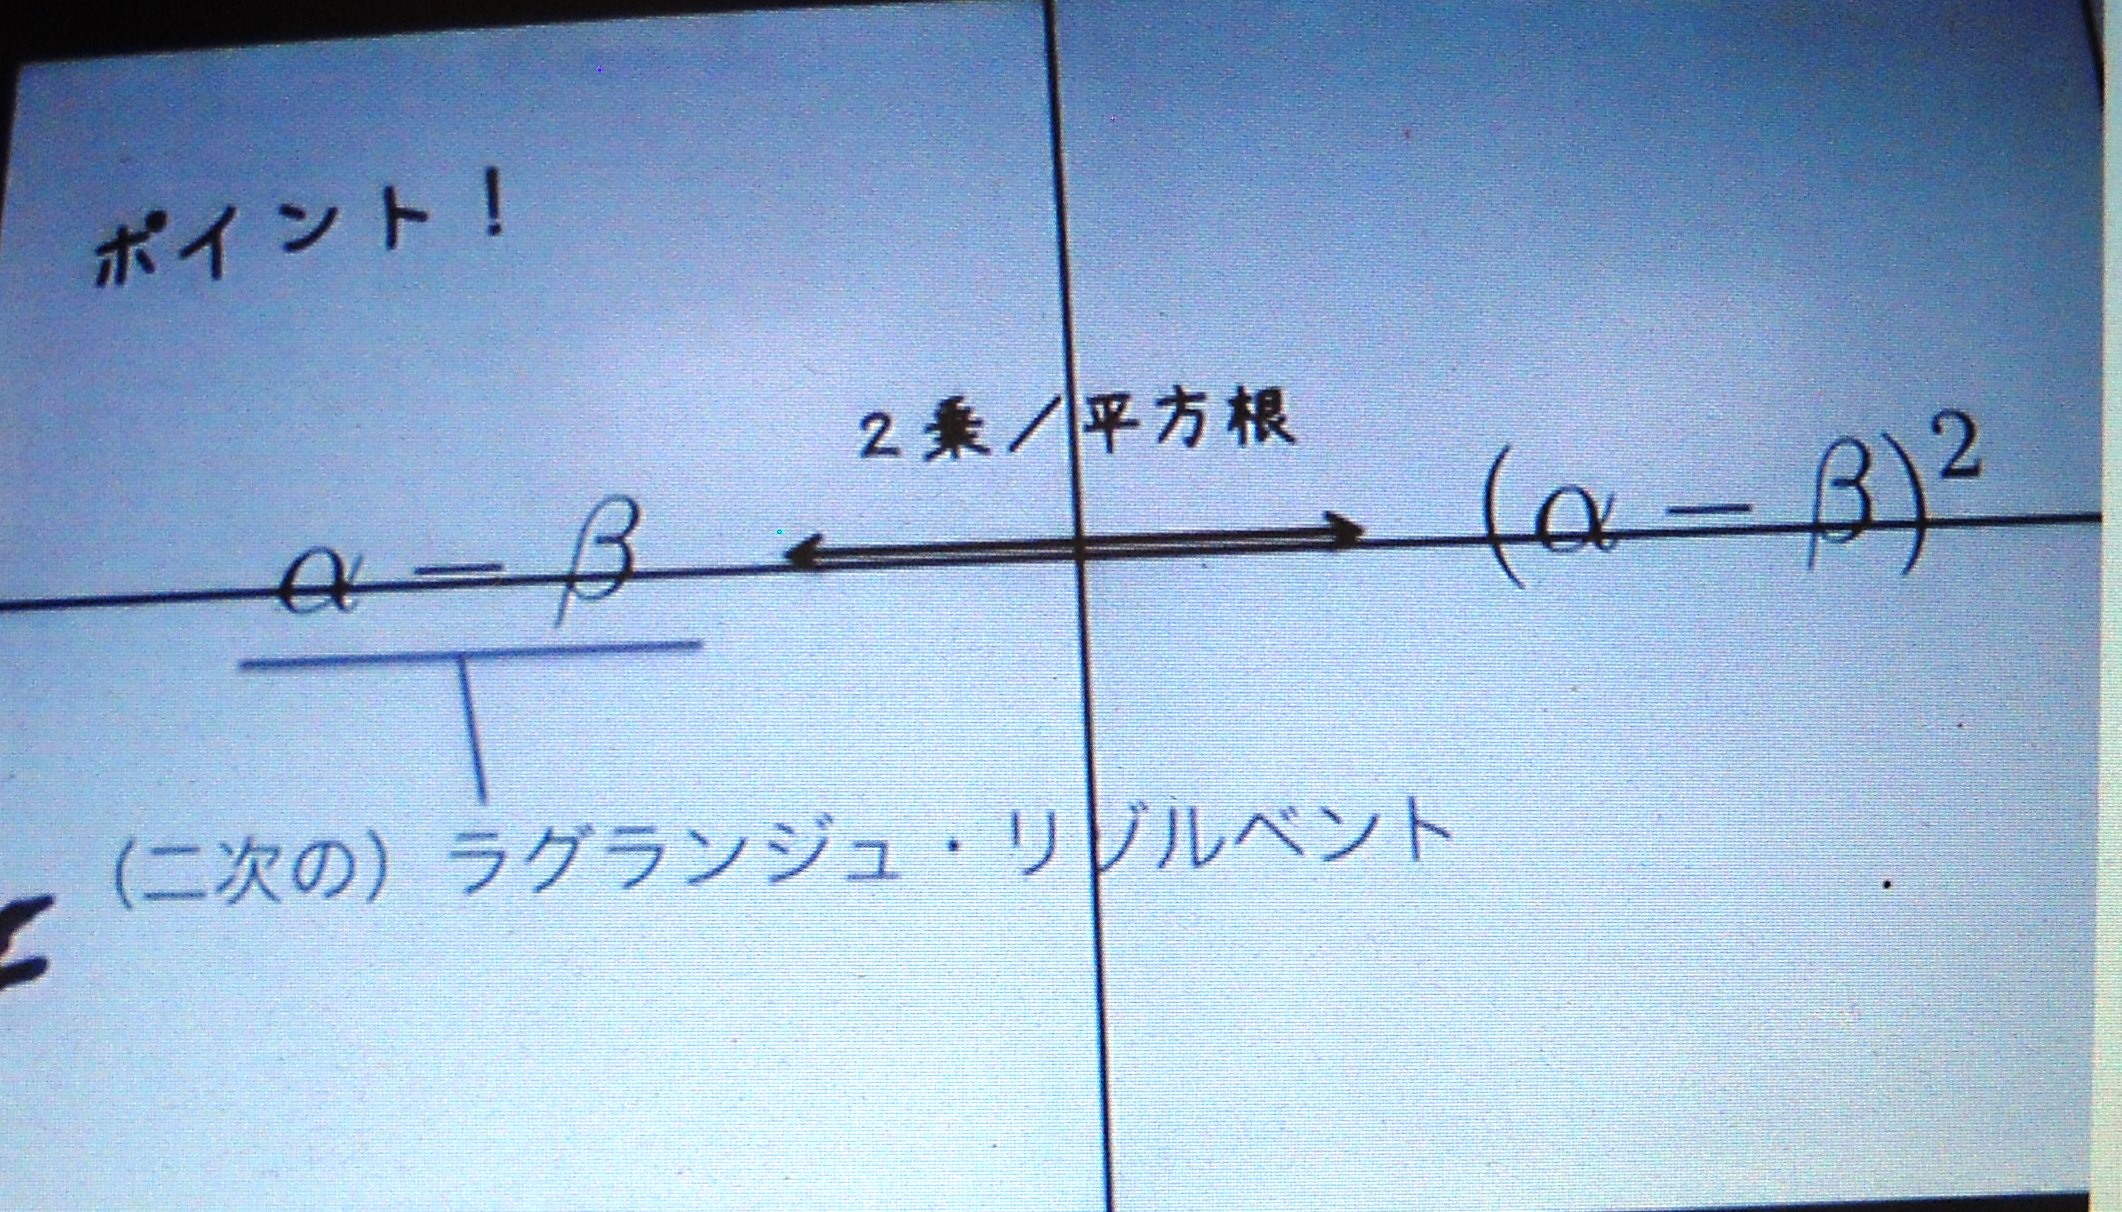 ポイント！
2乗／平方根
α − β
(α − β)²
（二次の）ラグランジュ・リゾルベント